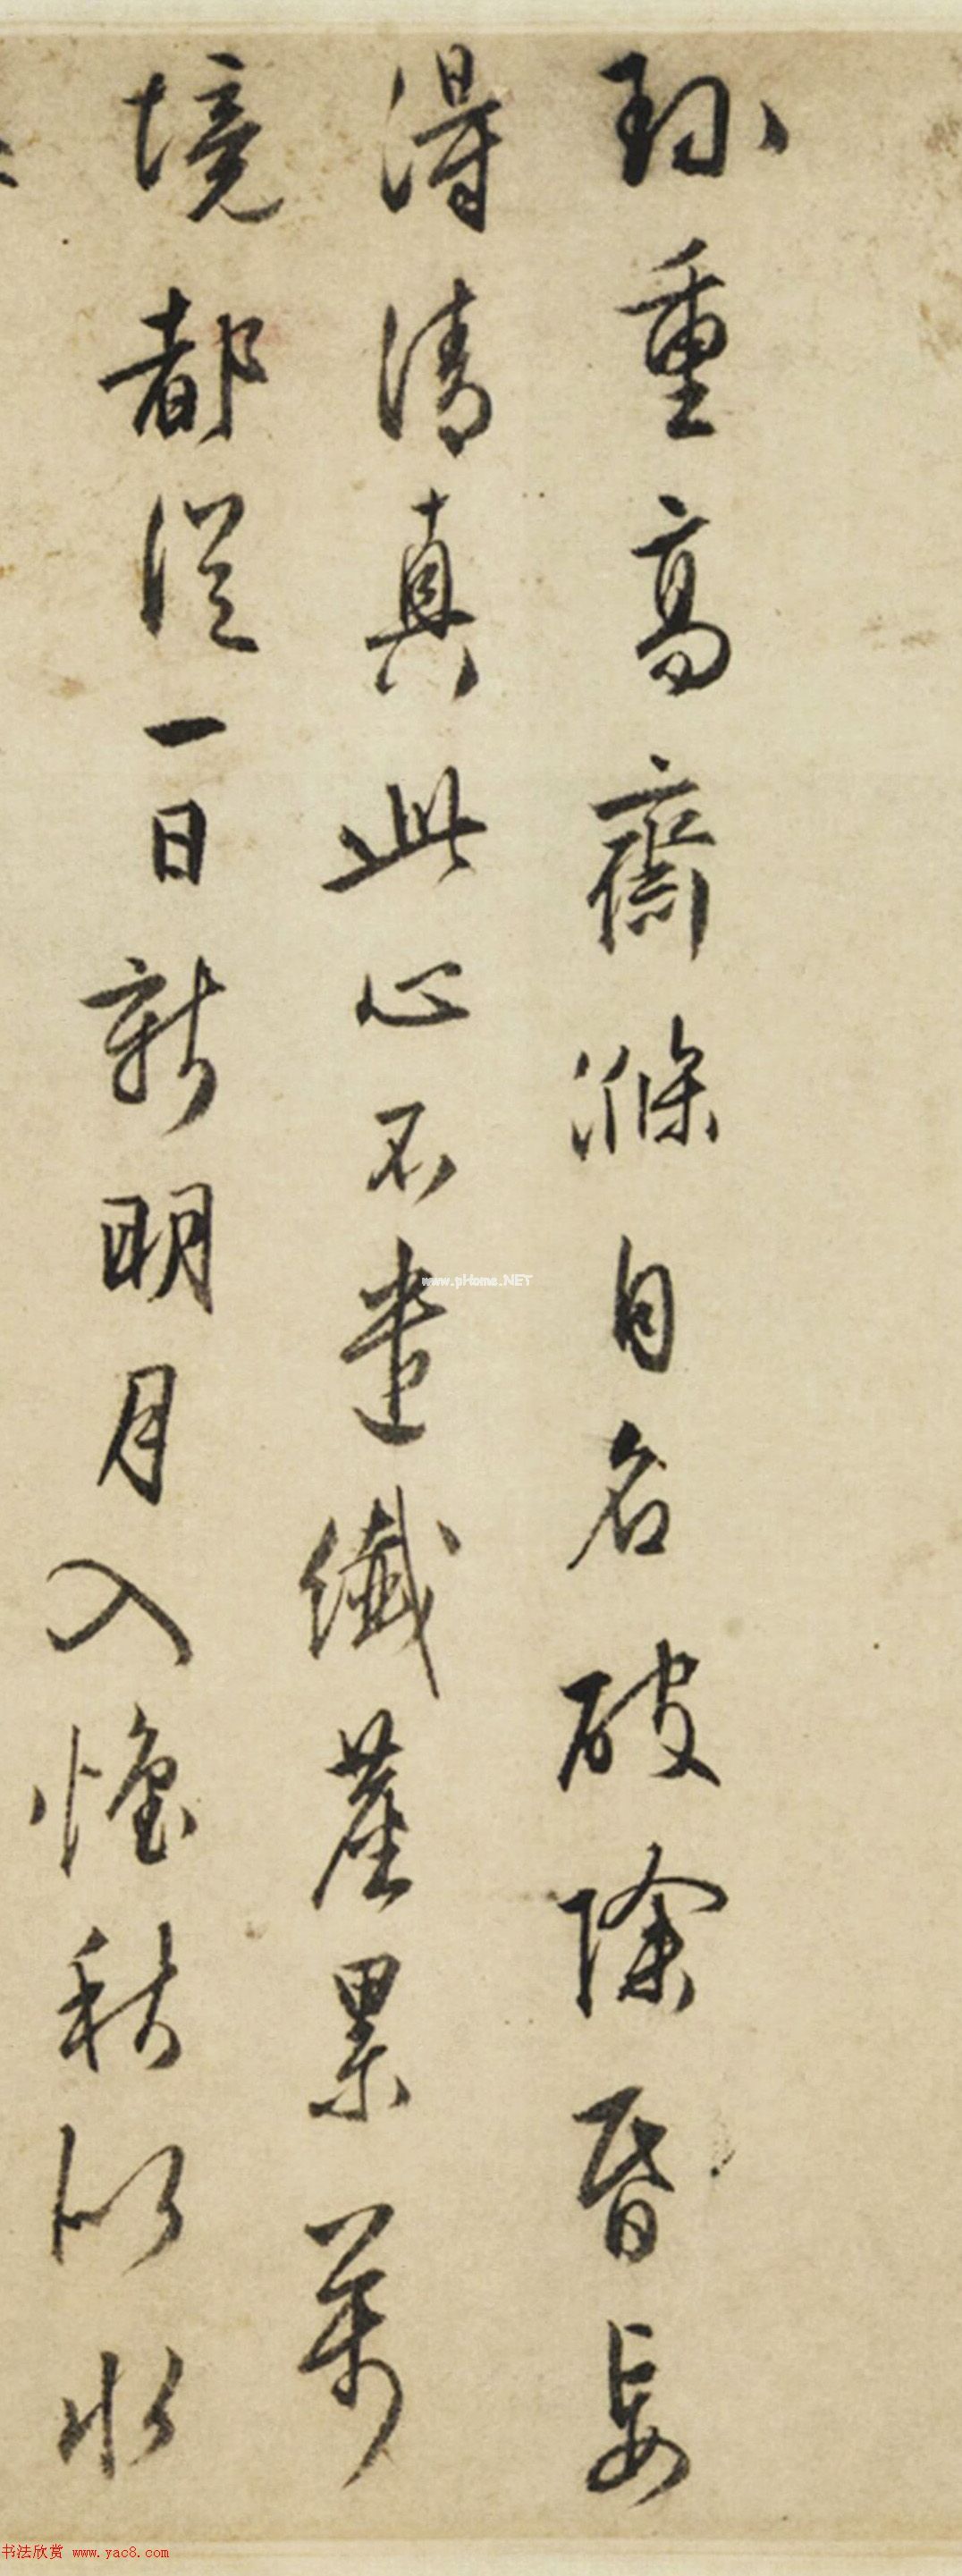 珎重髙齋滌自名破除昏妄
得清真此心不遣纖塵累萬
境都從一日新明月入懷秋似水
www.pHome.NET
书法欣赏 www.yac8.com